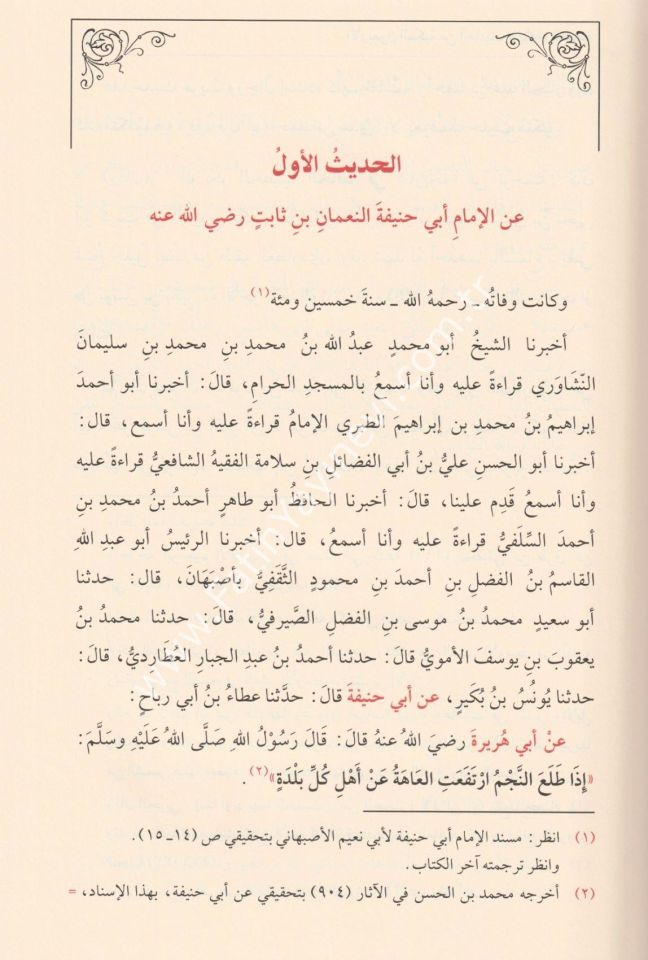 الحديثُ الأولُ
عن الإمامِ أبي حنيفةَ النعمانِ بنِ ثابتٍ رضي الله عنه
وكانت وفاتُه ـ رحمهُ الله ـ سنةَ خمسين ومئة(١)
أخبرنا الشيخُ أبو محمدٍ عبدُ الله بنُ محمدِ بنِ محمدِ بنِ سليمانَ
النّشَاوَري قراءةً عليه وأنا أسمعُ بالمسجدِ الحرامِ، قالَ: أخبرنا أبو أحمدَ
إبراهيمُ بنُ محمدِ بن إبراهيمَ الطبري الإمامُ قراءةً عليه وأنا أسمع، قال:
أخبرنا أبو الحسنِ عليُّ بنُ أبي الفضائلِ بنِ سلامة الفقيهُ الشافعيُّ قراءةً عليه
وأنا أسمعُ قَدِم علينا، قالَ: أخبرنا الحافظُ أبو طاهرٍ أحمدُ بنُ محمدِ بنِ
أحمدَ السِّلَفيُّ قراءةً عليه وأنا أسمعُ، قال: أخبرنا الرئيسُ أبو عبدِ اللهِ
القاسمُ بنُ الفضلِ بنِ أحمدَ بنِ محمودٍ الثَّقَفِيُّ بأصْبَهَانَ، قال: حدثنا
أبو سعيدٍ محمدُ بنُ موسى بنِ الفضلِ الصَّيرفيُّ، قالَ: حدثنا محمدُ بنُ
يعقوبَ بنِ يوسفَ الأمويُّ قالَ: حدثنا أحمدُ بنُ عبدِ الجبارِ العُطَارِديُّ، قالَ:
حدثنا يُونُسُ بنُ بُكَيرٍ، عن أبي حنيفةَ قالَ: حدَّثنا عطاءُ بنُ أبي رباحٍ:
عنْ أبي هُريرةَ رضيَ اللهُ عنهُ قالَ: قَالَ رَسُوْلُ اللهِ صَلَّى اللهُ عَلَيْهِ وَسَلَّمَ:
«إِذَا طَلَعَ النَّجْمُ ارْتَفَعَتِ العَاهَةُ عَنْ أَهْلِ كُلِّ بَلْدَةٍ»(٢).
(١) انظر: مسند الإمام أبي حنيفة لأبي نعيم الأصبهاني بتحقيقي ص (١٤ـ١٥).
وانظر ترجمته آخر الكتاب.
(٢) أخرجه محمد بن الحسن في الآثار (٩٠٤) بتحقيقي عن أبي حنيفة، بهذا الإسناد، =